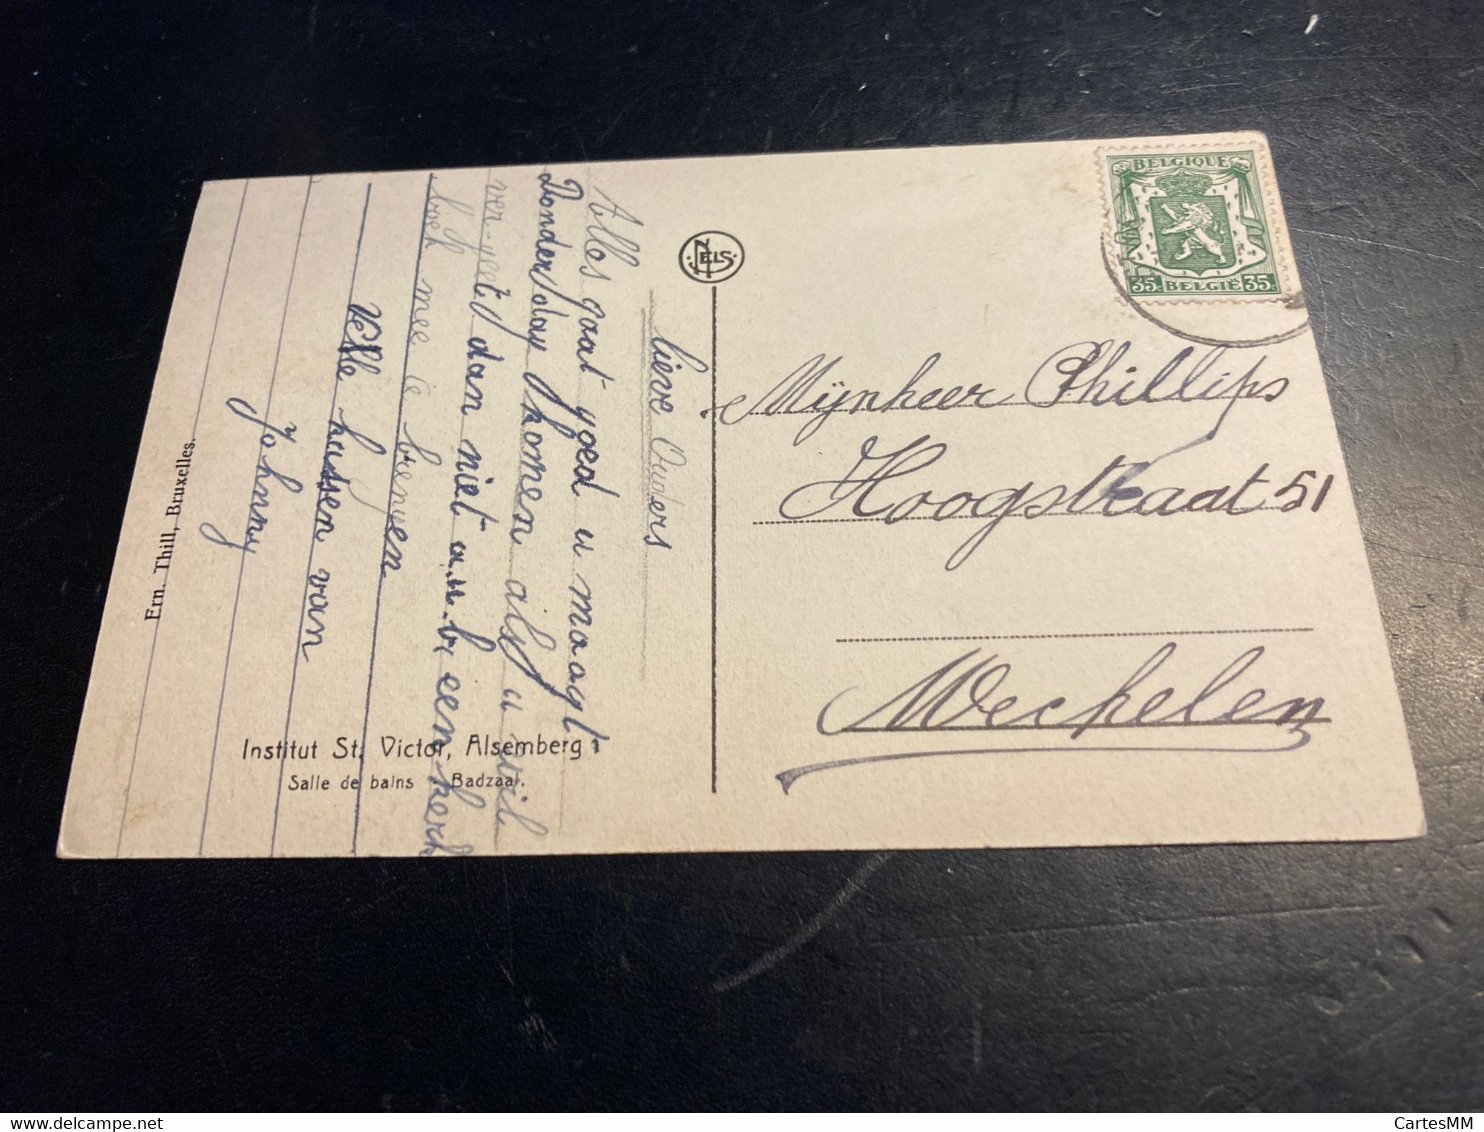 lieve Ouders
Alles gaat goed u moogt
Donderdag komen als u wil
vergeet dan niet a.u.b. een kerk
boek mee te brengen
Vele kussen van
Johnny
Institut St. Victor, Alsemberg
Salle de bains Badzaal.
Ern. Thill, Bruxelles.
NELS
BELGIQUE
35 BELGIË 35
Mijnheer Phillips
Hoogstraat 51
Mechelen
CartesMM